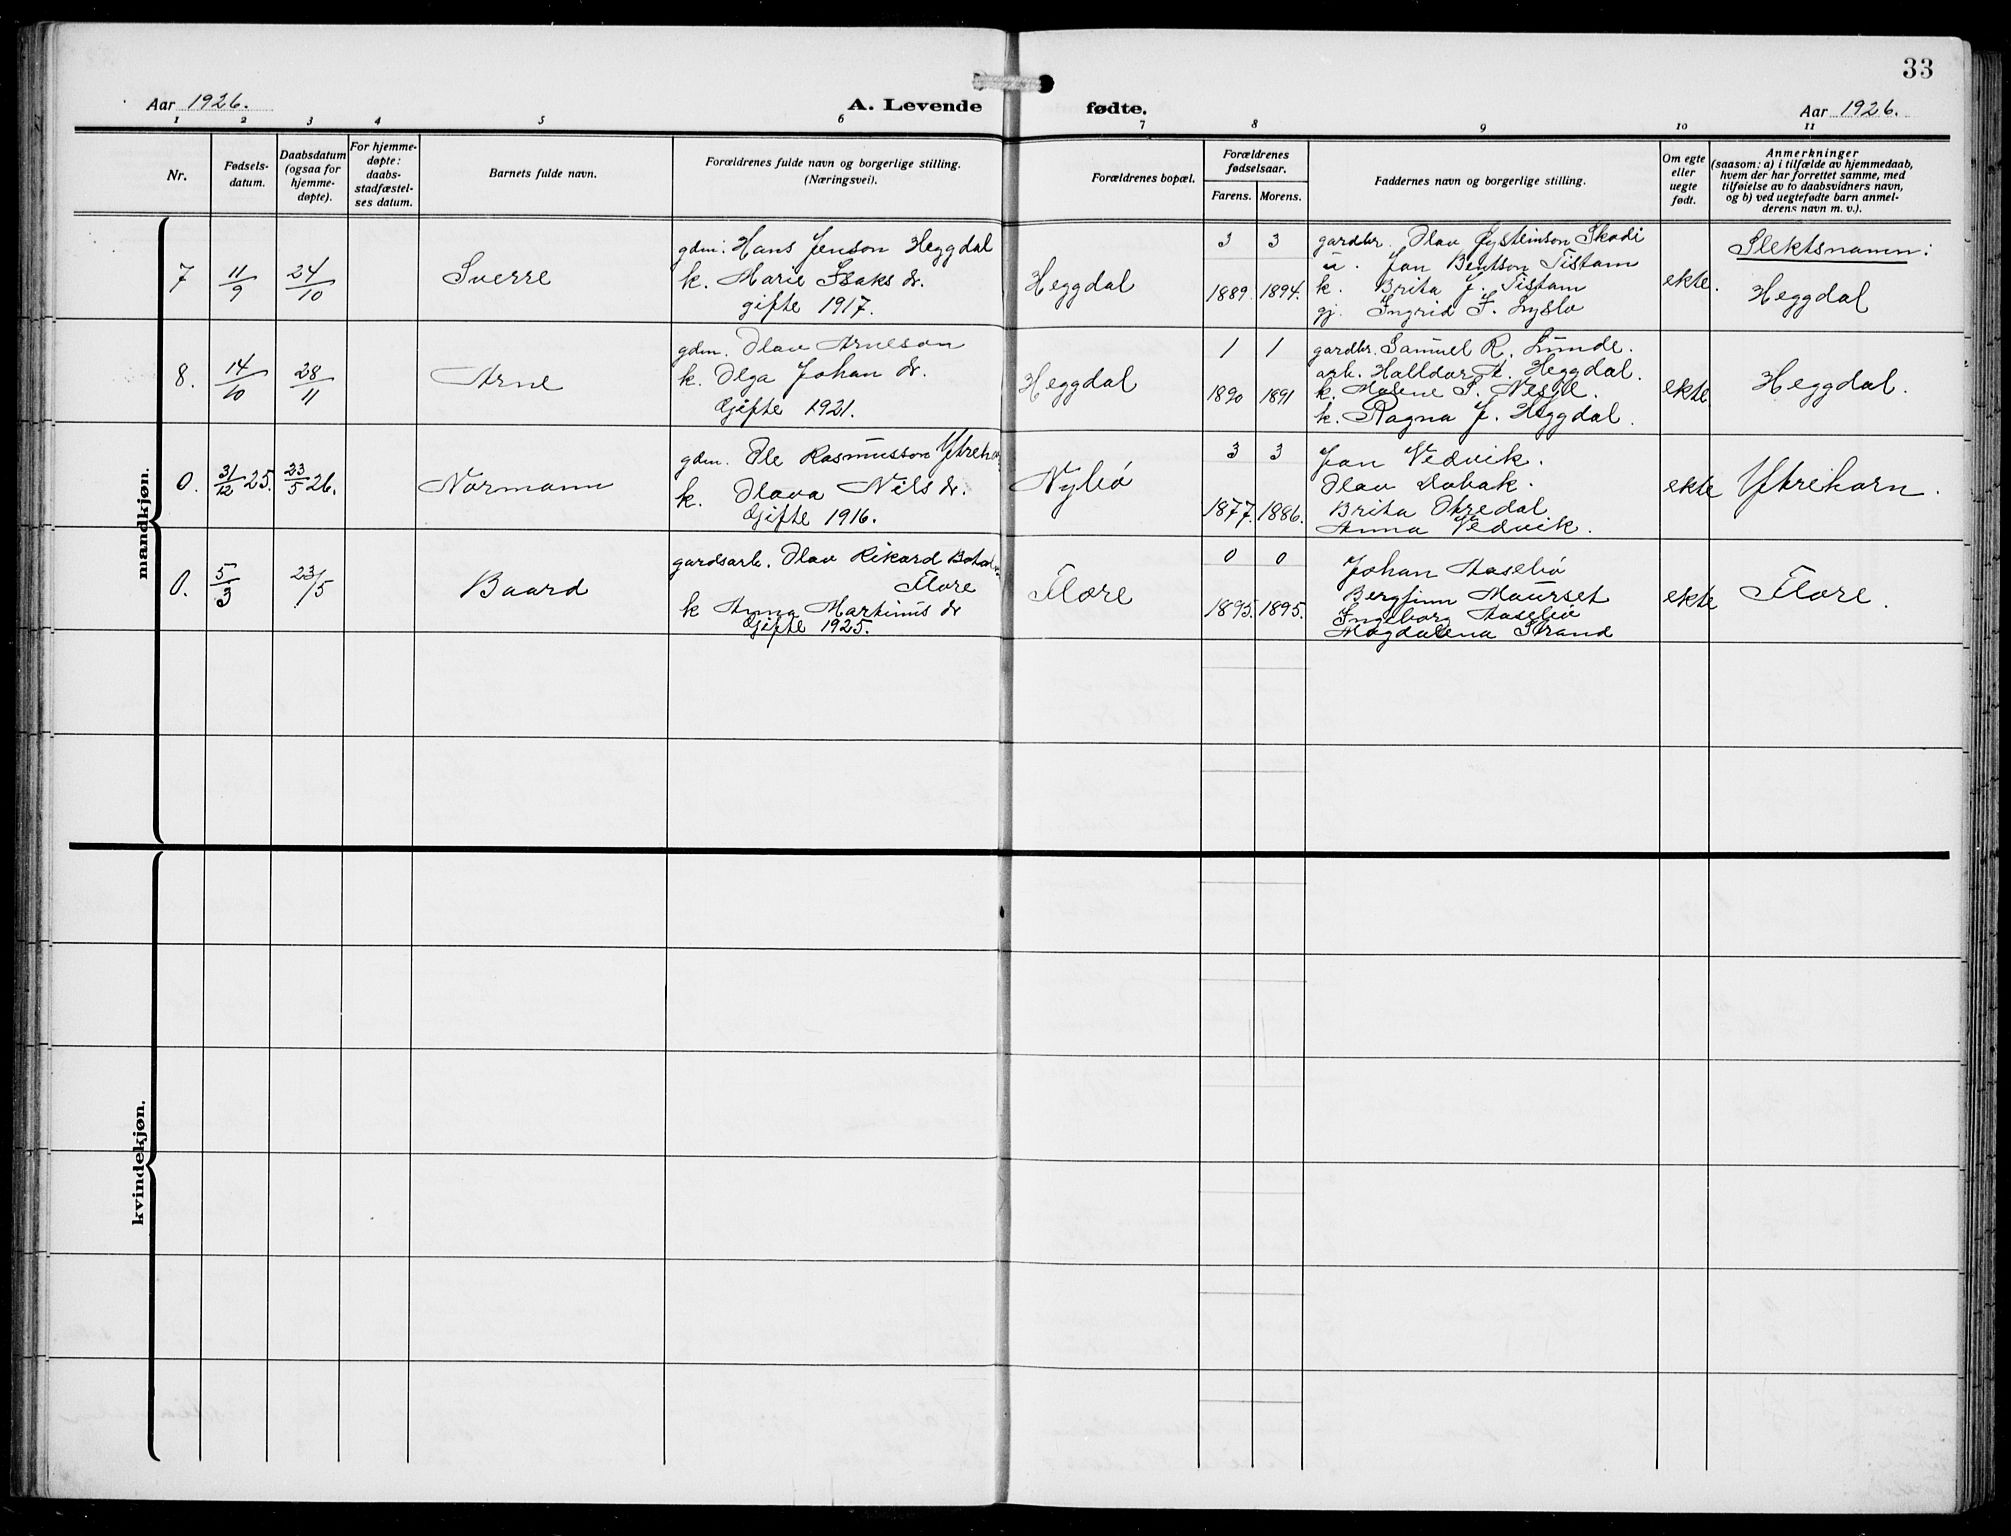 33
Aar 1926.
A. Levende fødte.
Aar 1926.
1 2 3 4 5 6 7 8 9 10 11
Nr.
Fødsels-
datum.
Daabsdatum
(ogsaa for
hjemme-
døpte).
For hjemme-
døpte:
daabs-
stadfæstel-
ses datum.
Barnets fulde navn.
Forældrenes fulde navn og borgerlige stilling.
(Næringsvei).
Forældrenes bopæl.
Forældrenes
fødselsaar.
Farens. Morens.
Faddernes navn og borgerlige stilling.
Om egte
eller
uegte
født.
Anmerkninger
(saasom: a) i tilfælde av hjemmedaab,
hvem der har forrettet samme, med
tilføielse av to daabsvidners navn,
og b) ved uegtefødte barn anmel-
derens navn m. v.).
mandkjøn.
7
11/9
24/10
Sverre
gdm: Hans Jenson Heggdal
k. Marie Isaks dr.
gifte 1917.
Heggdal
3 3
1889. 1894.
gardbr. Olav Øysteinson Skodi
u. Jon Bentson Tistam
k. Brita J. Tistam
gj. Ingrid J. Lyslo
ekte.
Slektsnamn:
Heggdal
8.
14/10
28/11
Arne
gdm. Olav Arneson
k. Olga Johan dr.
Gifte 1921.
Heggdal
1 1
1890 1891
gardbr. Samuel R. Lunde.
arb. Halldor A. Heggdal.
k. Malene S. Nesje.
k. Ragna J. Heggdal.
ekte
Heggdal.
0.
31/12 25.
23/5 26.
Normann
gdm. Ole Rasmusson Ytrehorn
k. Olava Nils dr.
Gifte 1916.
Nybø
3 3
1877. 1886.
Jon Vedvik.
Olav Dobak.
Brita Otredal
Anna Vedvik.
ekte
Ytrehorn.
0.
5/3
23/5
Baard
gardsarb. Olav Rikard
Flore
k Anna Martinus dr
Gifte 1925.
Flore
0 0
1895. 1895.
Johan Aasebø
Bergfinn Maurset
Ingeborg Aasebø
Magdalena Strand
ekte
Flore.
kvindekjøn.